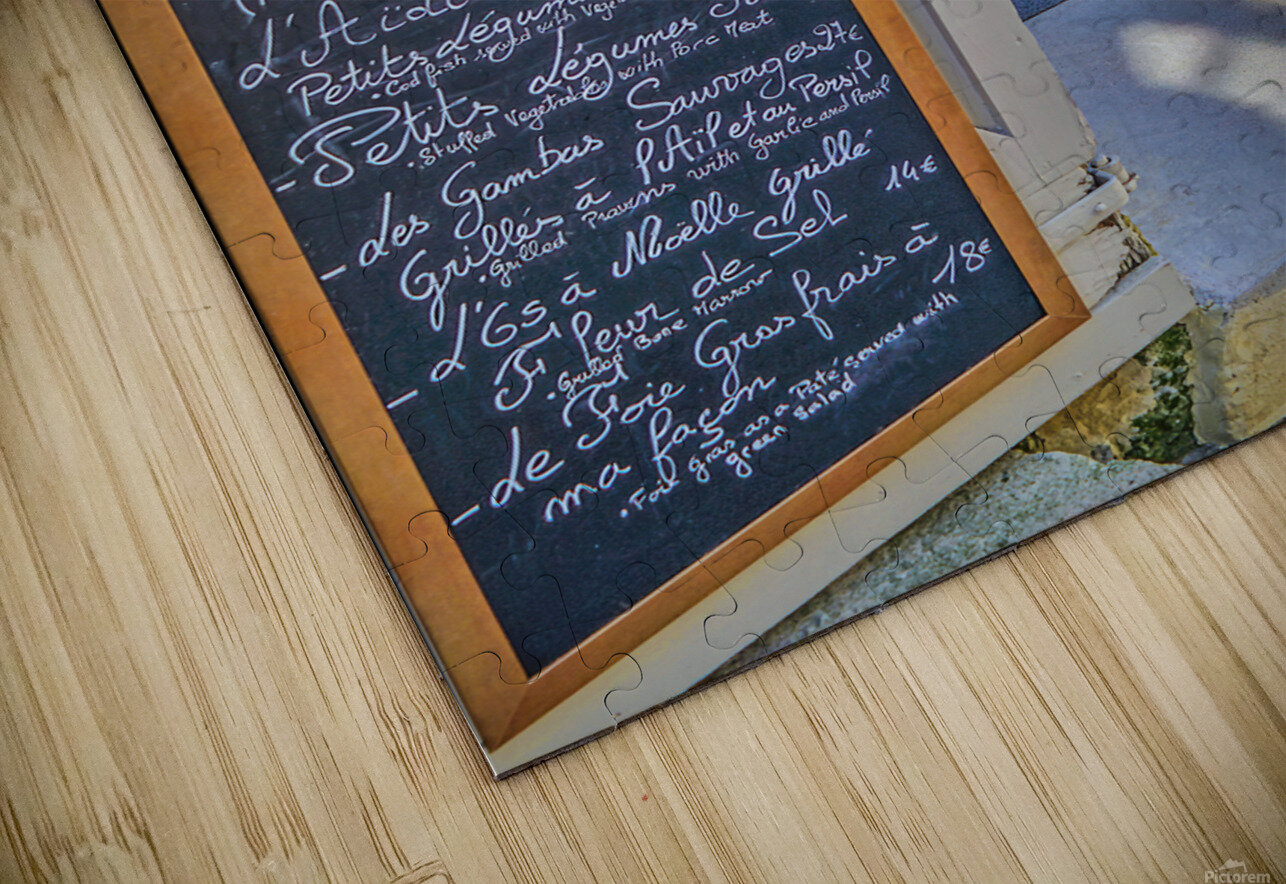 L'Aïoli
Petits Légumes
.Cod fish served with Vege
- Petits Légumes
.Stuffed Vegetables with Porc Meat
- des Gambas Sauvages 27€
Grillés à l'Aïl et au Persil
.Grilled Prawns with Garlic and Persil
- L'Os à Moëlle grillé
Fleur de Sel 14€
.Grilled Bone Marrow
- Le Foie Gras frais à
ma façon 18€
.Foie gras as a Paté served with
green salad
Pictorem